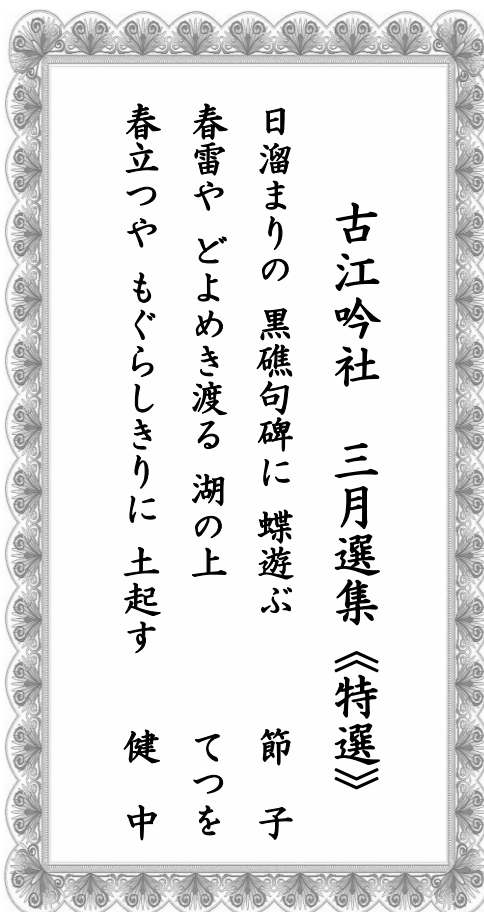 古江吟社　三月選集《特選》
日溜まりの 黒礁句碑に 蝶遊ぶ　節 子
春雷や どよめき渡る 湖の上　てつを
春立つや もぐらしきりに 土起す　健 中